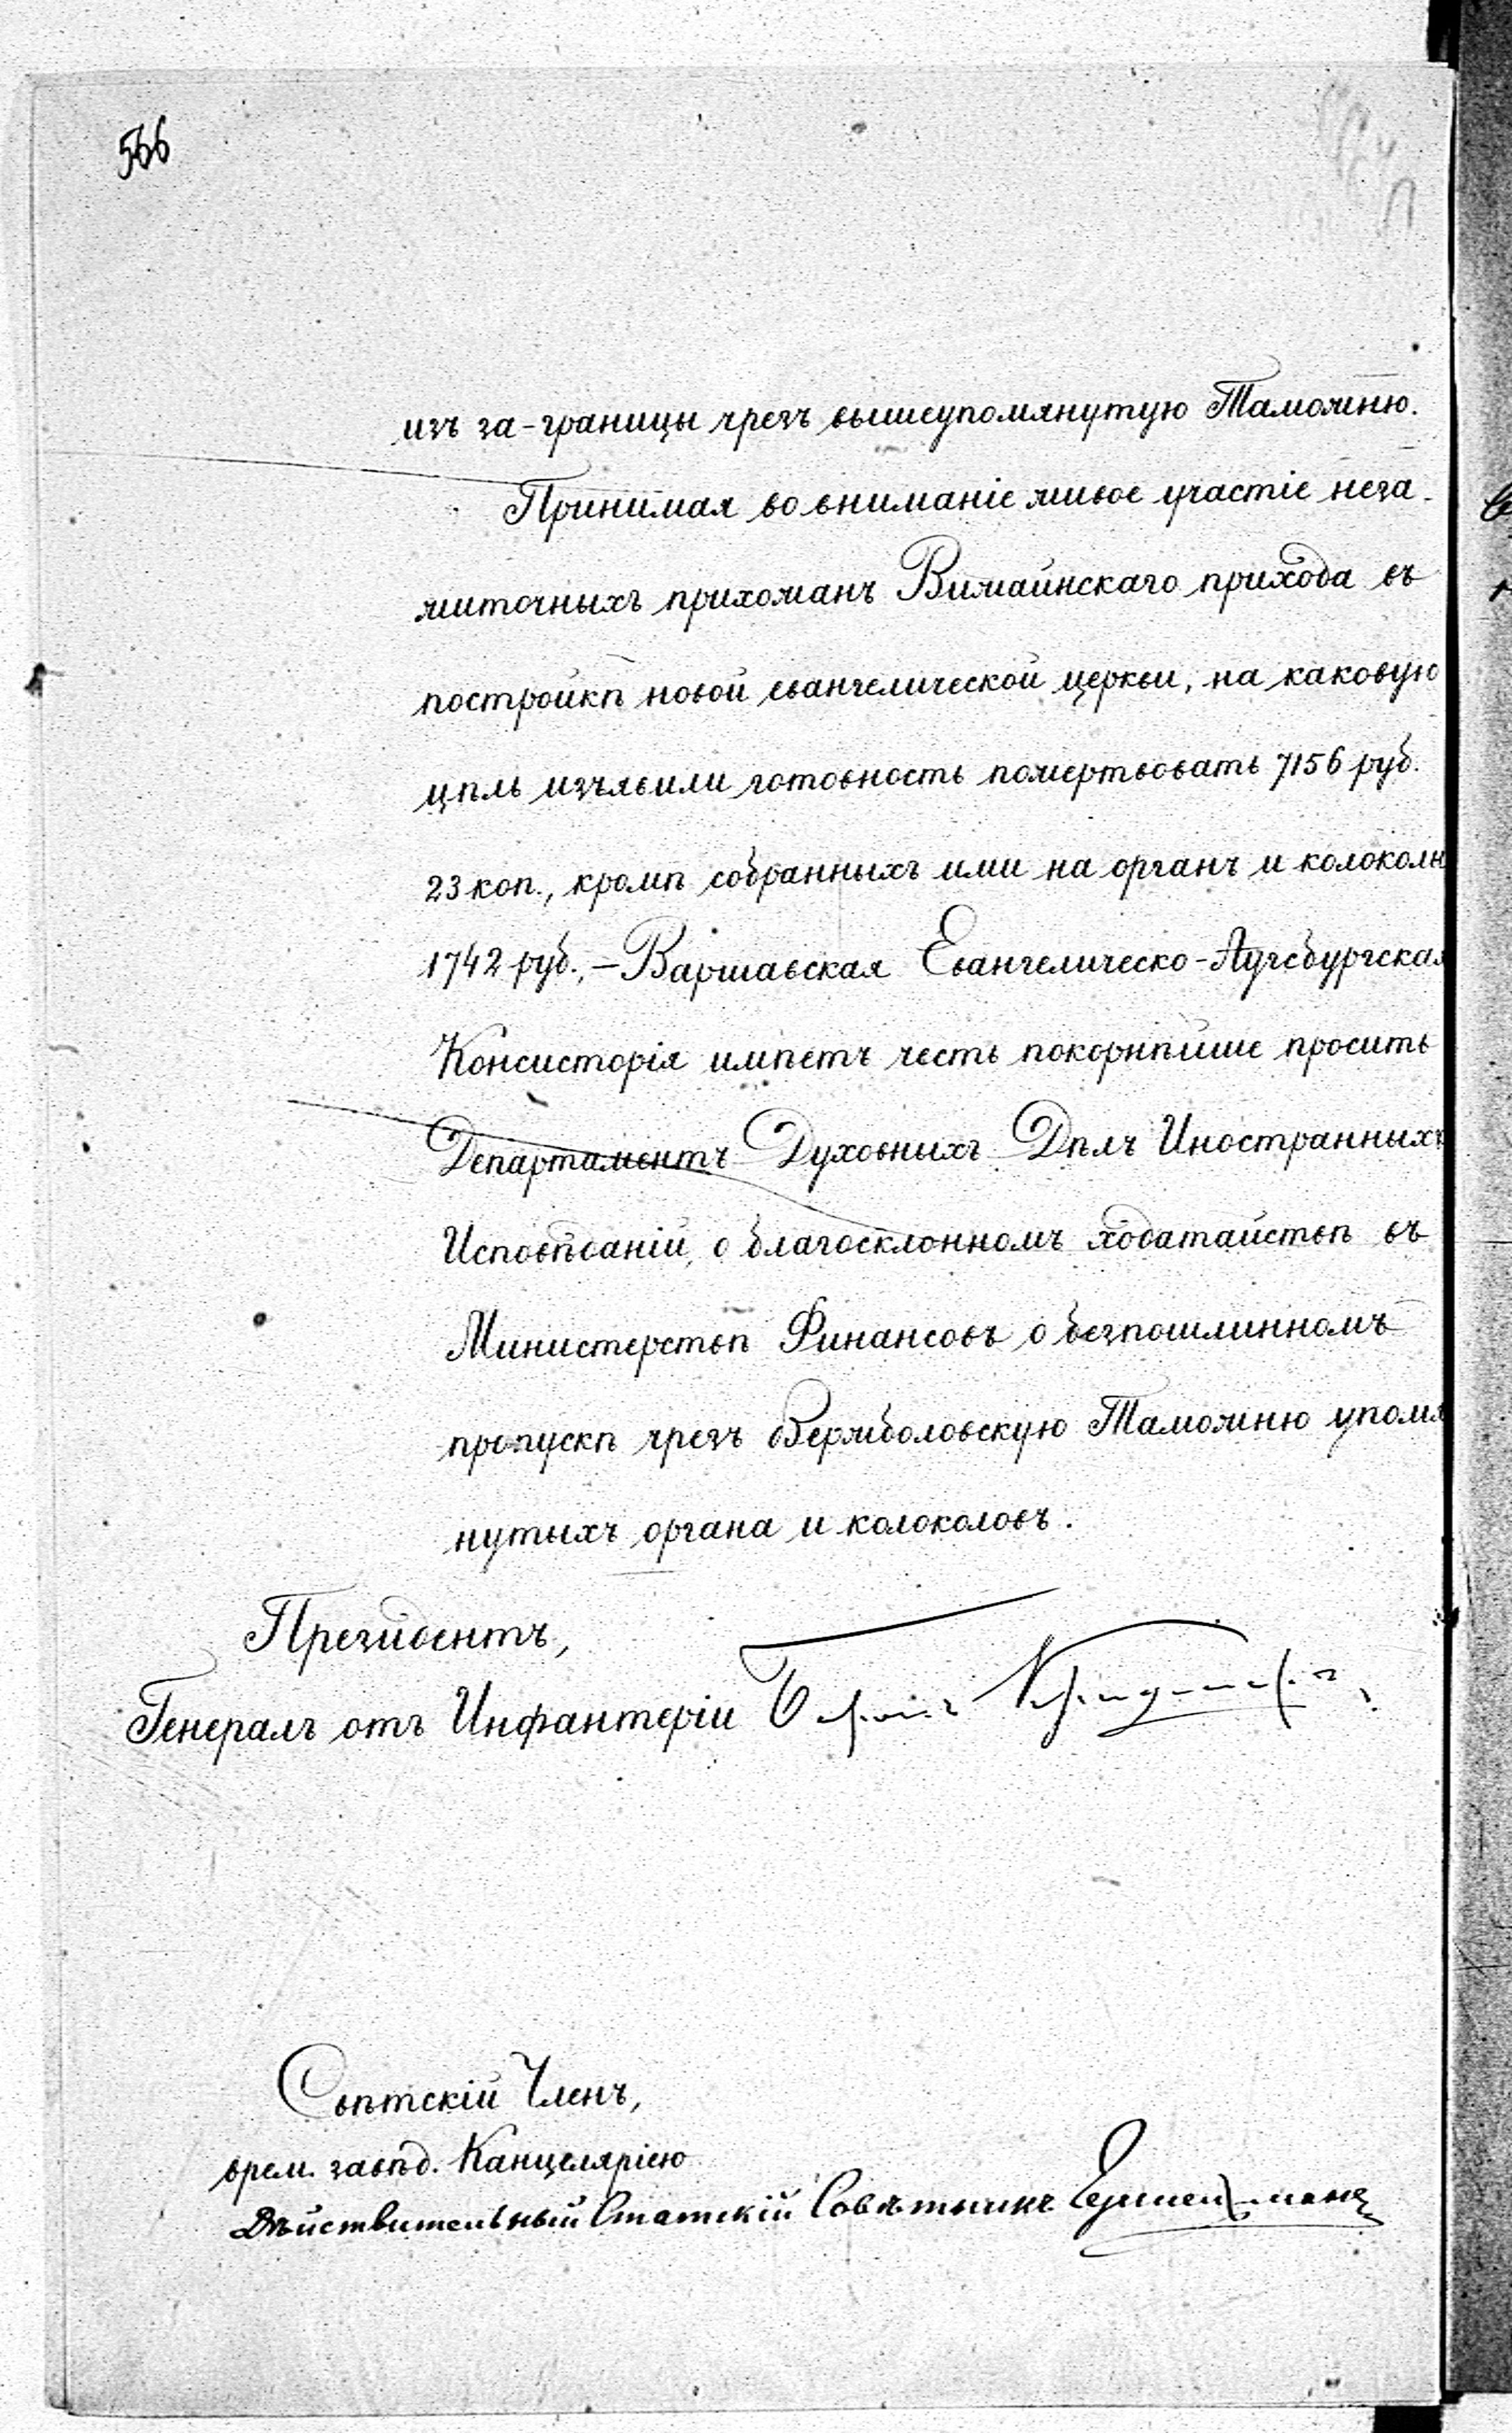 566
изъ за-границы чрезъ вышеупомянутую Таможню.
Принимая во вниманіе живое участіе неза-
житочныхъ прихожанъ Вижайнскаго прихода въ
постройкѣ новой евангелической церкви, на каковую
цѣль изъявили готовность пожертвовать 7156 руб.
23 коп., кромѣ собранныхъ ими на органъ и колокола
1742 руб., – Варшавская Евангелическо-Аугсбургская
Консисторія имѣетъ честь покорнѣйше просить
Департаментъ Духовныхъ Дѣлъ Иностранныхъ
Исповѣданій, о благосклонномъ ходатайствѣ въ
Министерствѣ Финансовъ о безпошлинномъ
пропускѣ чрезъ Вержболовскую Таможню упомя
нутыхъ органа и колоколовъ.
Президентъ,
Генералъ отъ Инфантеріи Баронъ
Свѣтскій Членъ,
врем. завѣд. Канцеляріею
Дѣйствительный Статскій Совѣтникъ